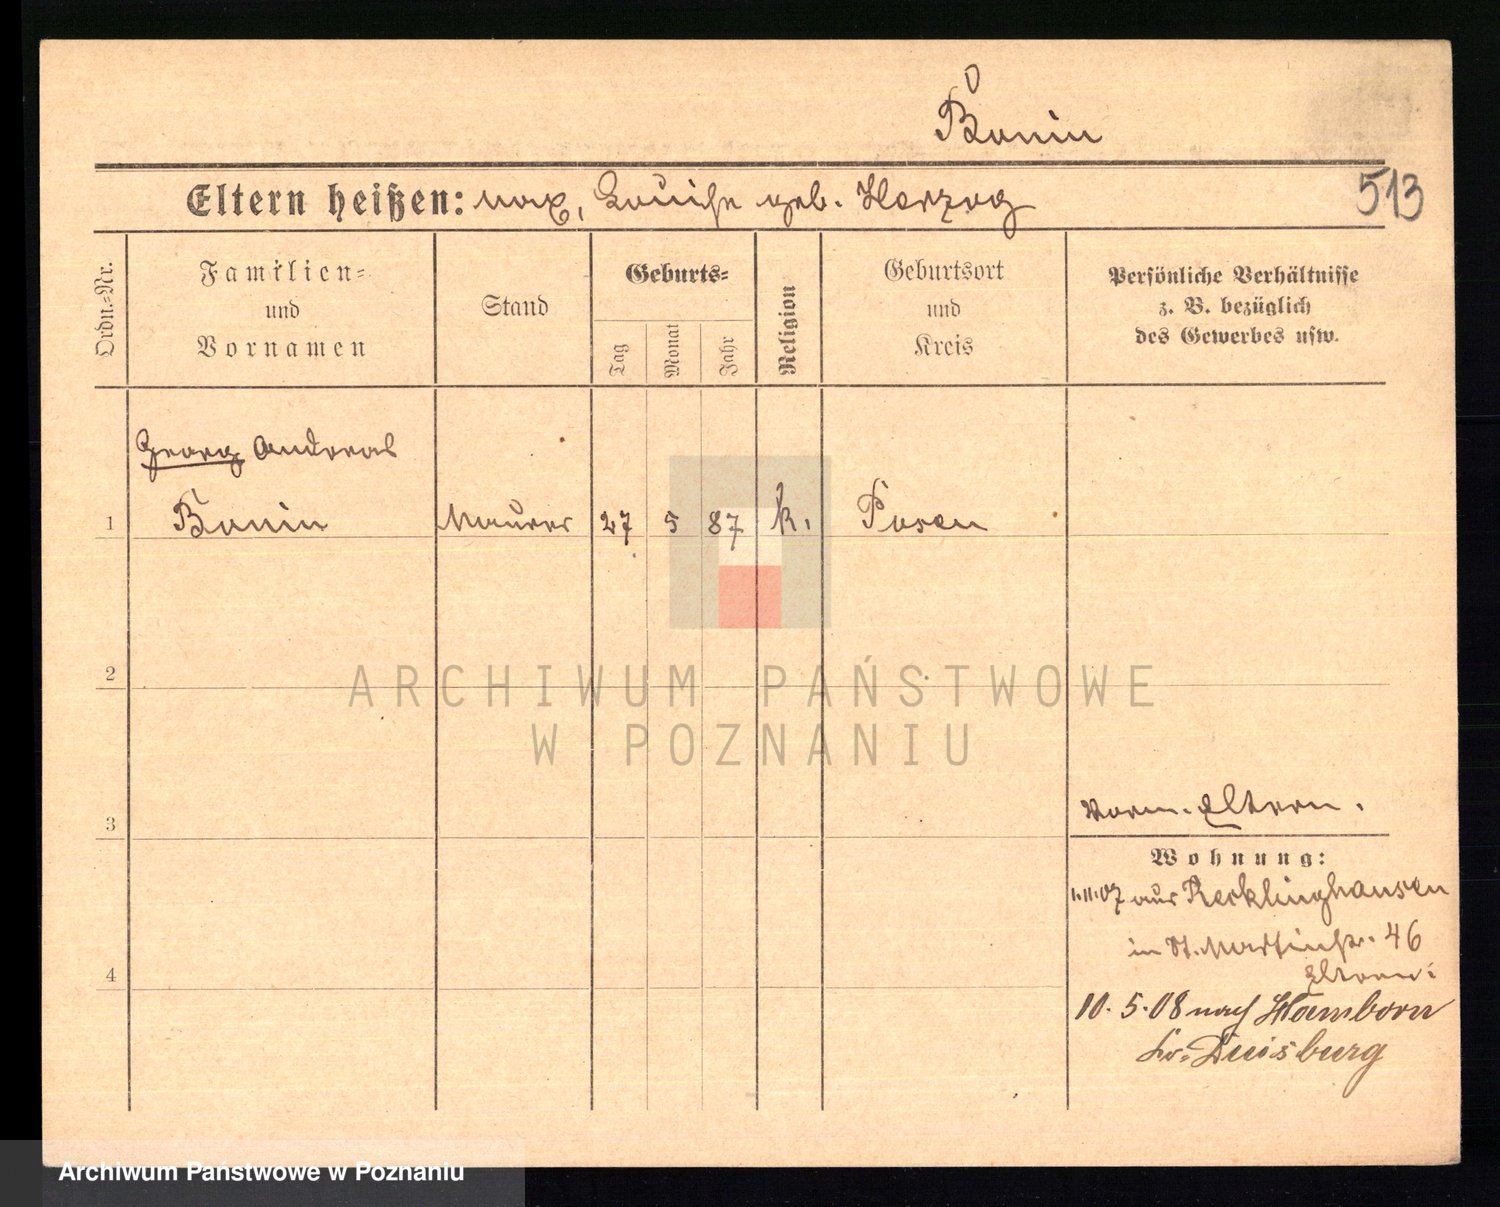 Bonin
Eltern heißen: Max, Louise geb. Herzog
513
Ordn.-Nr.
Familien-
und
Vornamen
Stand
Geburts-
Tag
Monat
Jahr
Religion
Geburtsort
und
Kreis
Persönliche Verhältnisse
z. B. bezüglich
des Gewerbes usw.
Georg Andreas
1 Bonin Maurer 27 5 87 k. Posen
2
ARCHIWUM PAŃSTWOWE
W POZNANIU
Eltern.
3
Wohnung:
1.11.07 aus Recklinghausen
in St. Martinstr. 46
Eltern:
4
10. 5. 08 nach Hamborn
Kr. Duisburg
Archiwum Państwowe w Poznaniu